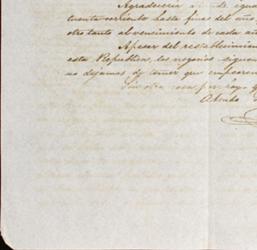 Agradecería
cuenta corriente hasta fines del año
otro tanto al vencimiento de cada añ
Apesar del restablecimien
esta República, los negocios siguen
no dejamos de temer que empeoren
Sin otra cosa por hoy q